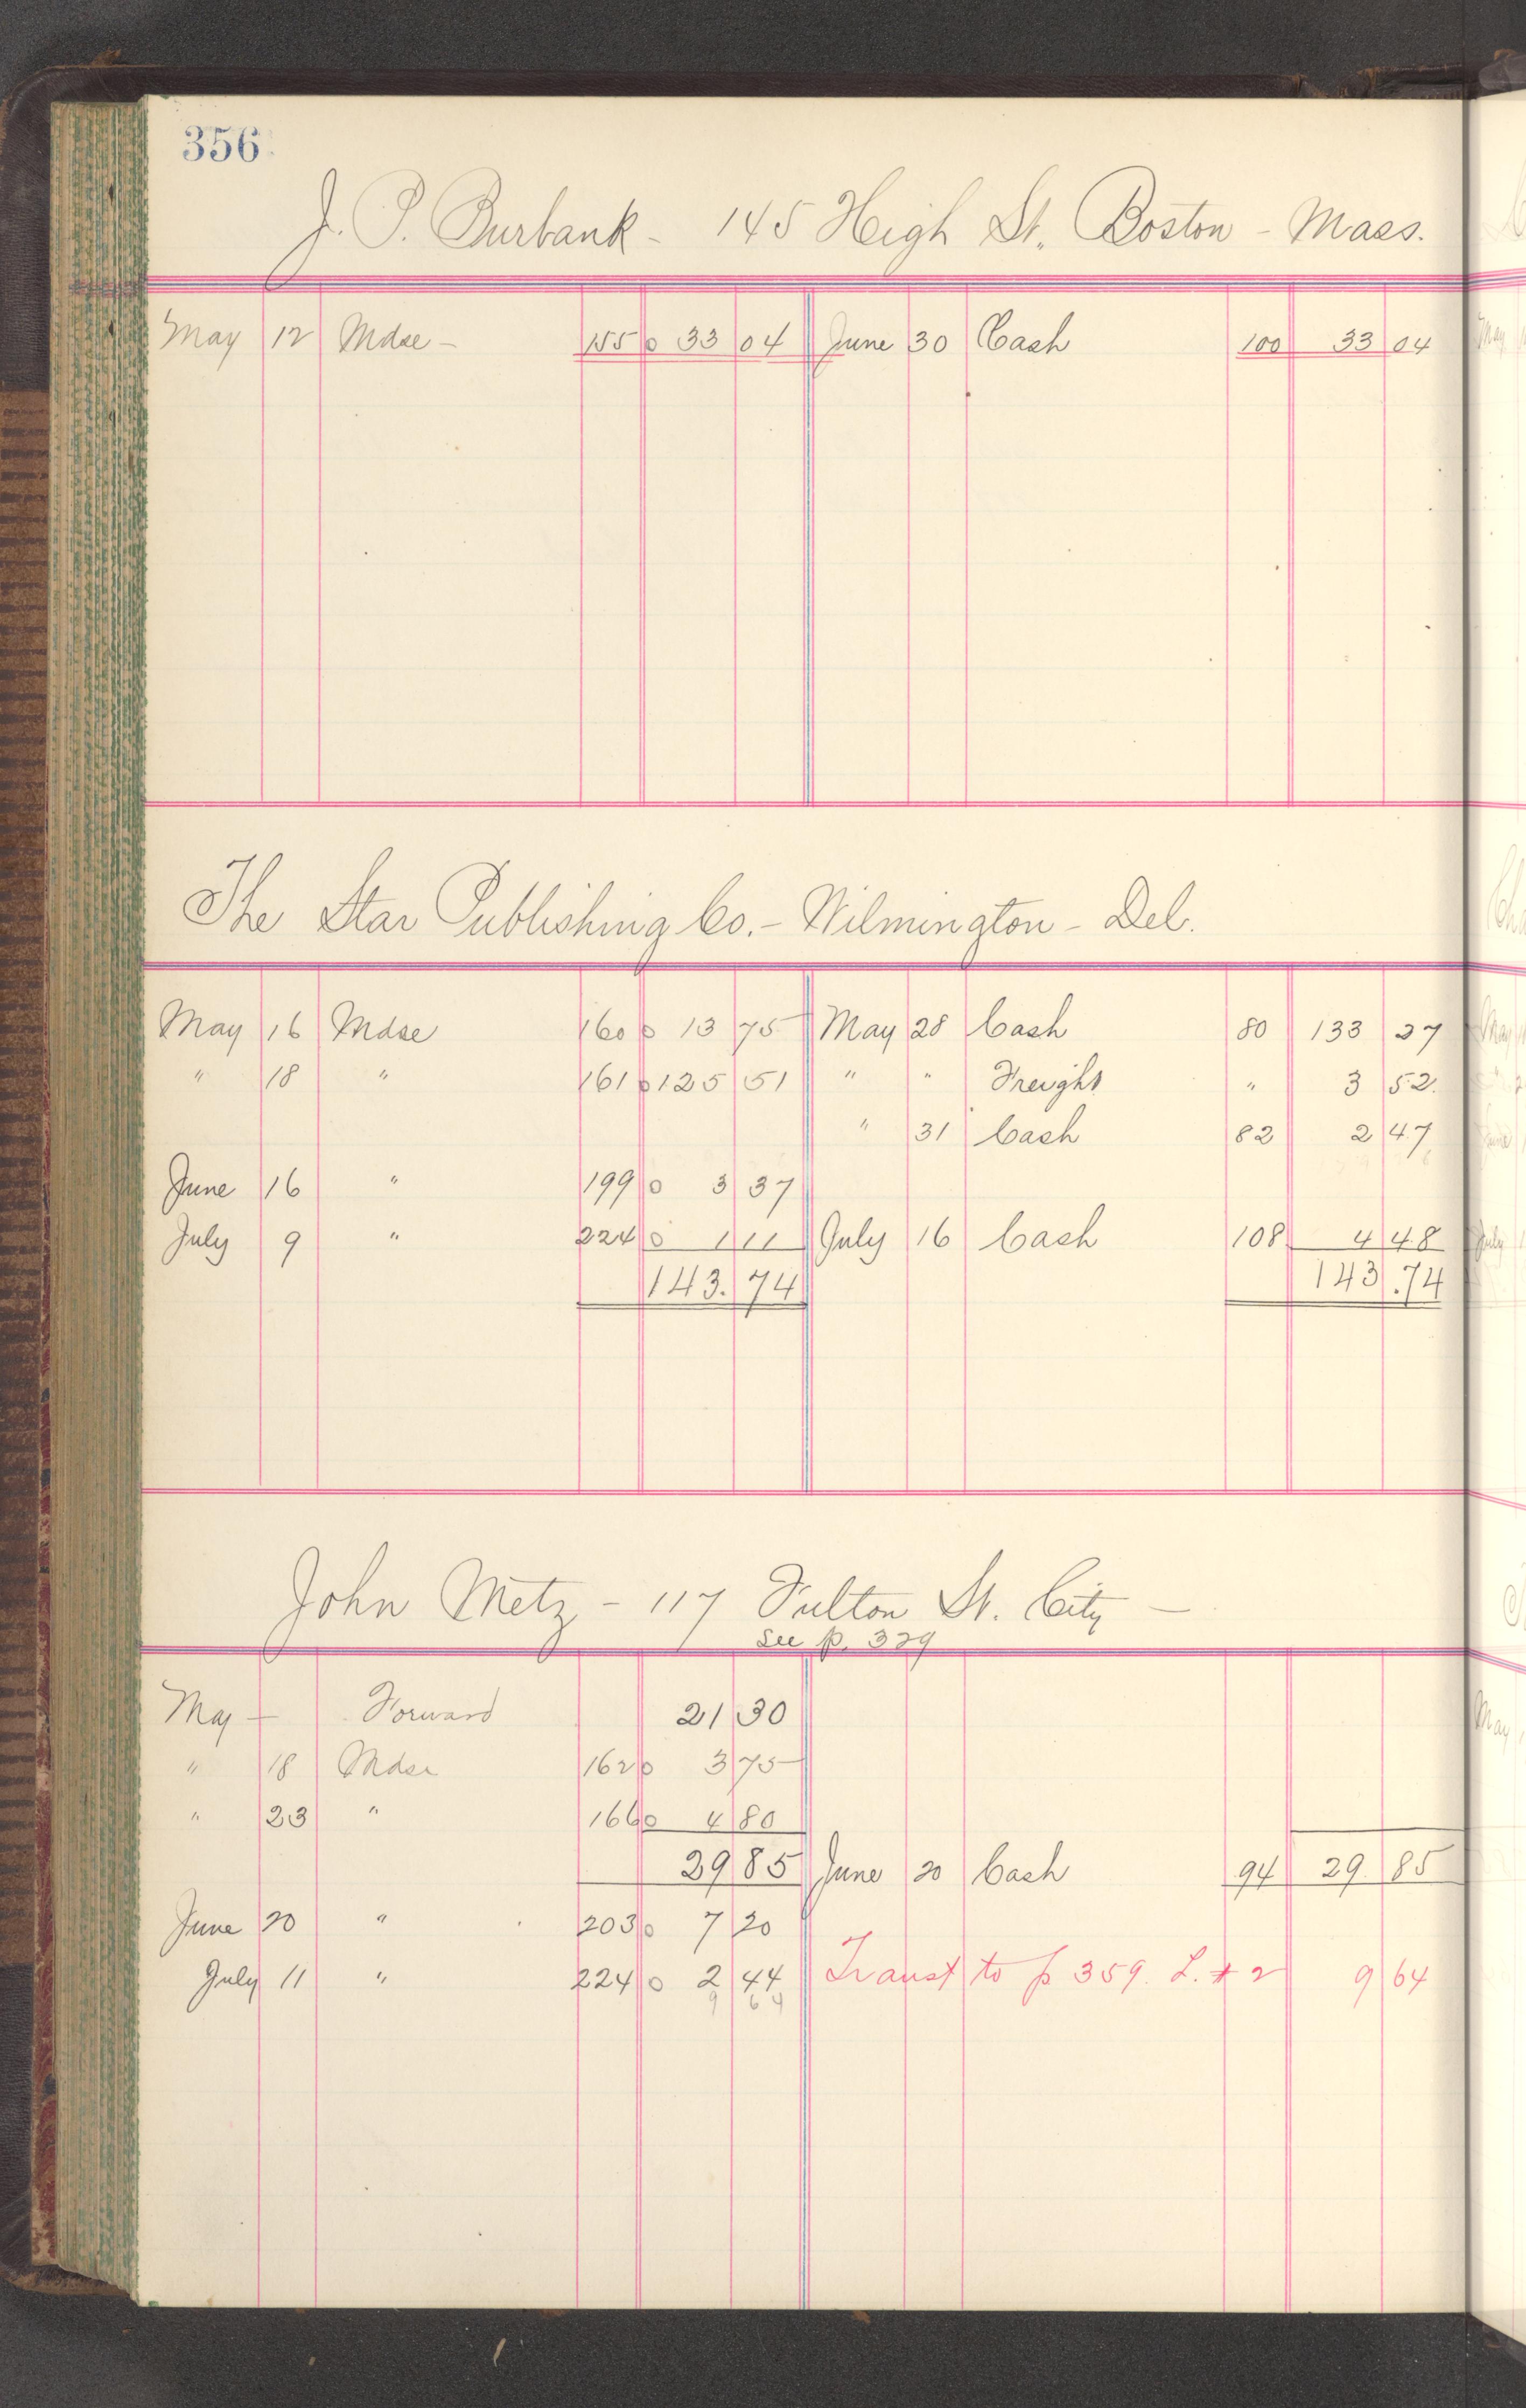 356
J. P. Burbank - 145 High St. Boston - Mass.
May 12 Mdse - 155 o 33 04 June 30 Cash 100 33 04
The Star Publishing Co. - Wilmington - Del.
May 16 Mdse 160 o 13 75 May 28 Cash 80 133 27
" 18 " 161 o 125 51 " " Freight " 3 52
" 31 Cash 82 2 47
June 16 " 199 o 3 37
July 9 " 224 o 1 11 July 16 Cash 108 4 48
143. 74 143 .74
John Metz - 117 Fulton St. City -
See p. 329
May - Forward 21 30
" 18 Mdse 162 o 3 75
" 23 " 166 o 4 80
29 85 June 20 Cash 94 29 85
June 20 " 203 o 7 20
July 11 " 224 o 2 44 Transf to p 359. L. # 2 9 64
9 64